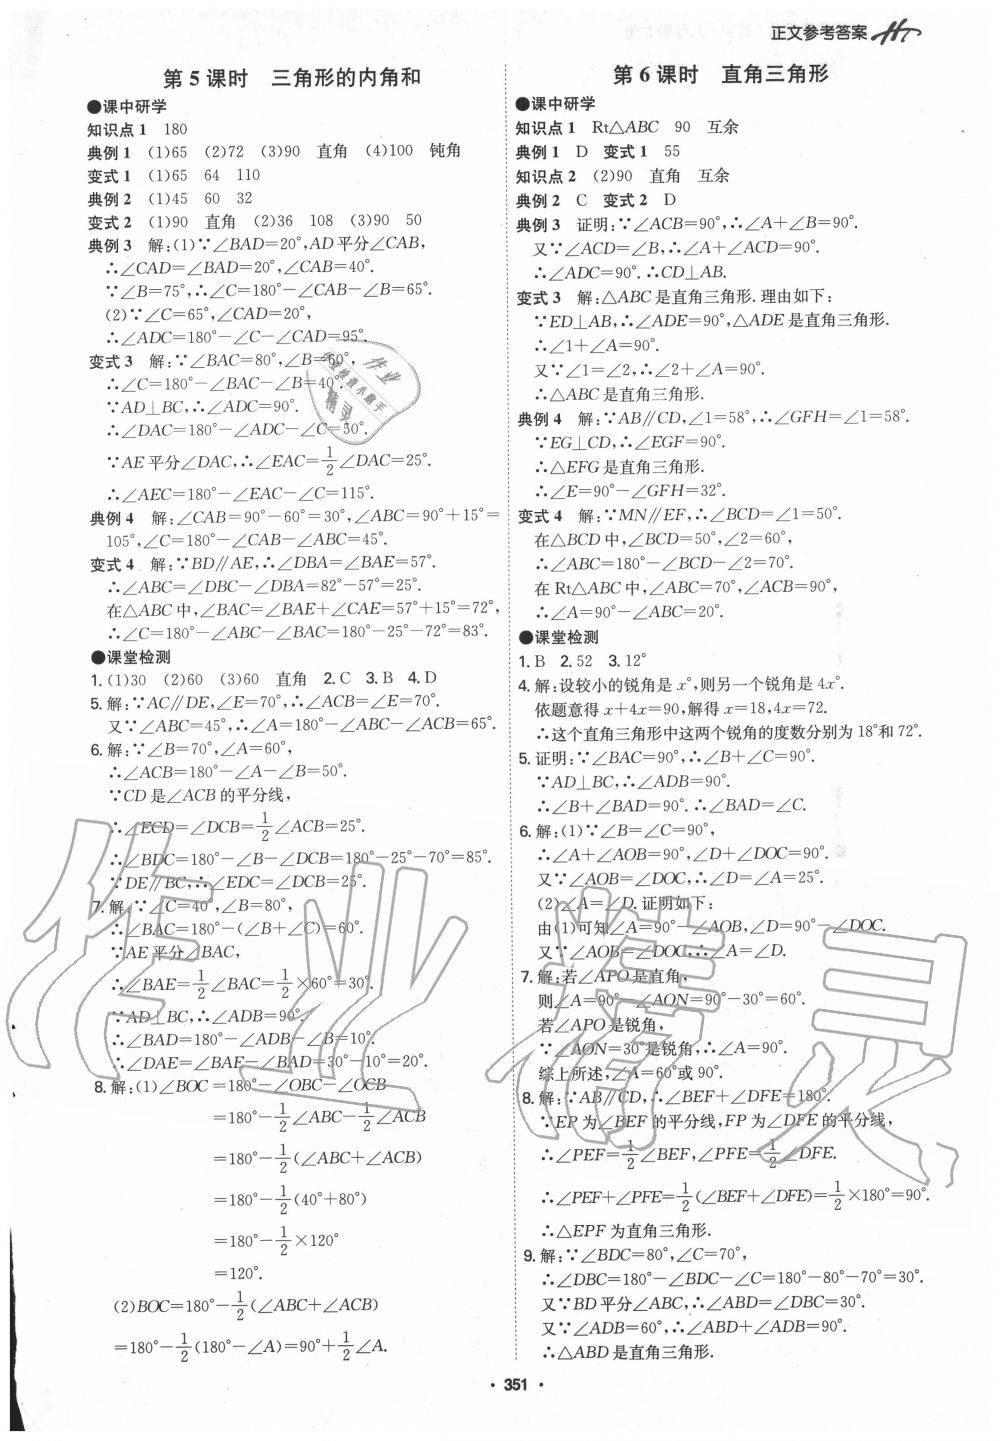 正文参考答案
第5课时　三角形的内角和
●课中研学
知识点1　180
典例1　(1)65　(2)72　(3)90　直角　(4)100　钝角
变式1　(1)65　64　110
典例2　(1)45　60　32
变式2　(1)90　直角　(2)36　108　(3)90　50
典例3　解:(1)∵∠BAD=20°,AD平分∠CAB,
∴∠CAD=∠BAD=20°,∠CAB=40°.
∵∠B=75°,∴∠C=180°-∠CAB-∠B=65°.
(2)∵∠C=65°,∠CAD=20°,
∴∠ADC=180°-∠C-∠CAD=95°.
变式3　解:∵∠BAC=80°,∠B=60°,
∴∠C=180°-∠BAC-∠B=40°.
∵AD⊥BC,∴∠ADC=90°.
∴∠DAC=180°-∠ADC-∠C=50°.
∵AE平分∠DAC,∴∠EAC=1/2∠DAC=25°.
∴∠AEC=180°-∠EAC-∠C=115°.
典例4　解:∠CAB=90°-60°=30°,∠ABC=90°+15°=
105°,∠C=180°-∠CAB-∠ABC=45°.
变式4　解:∵BD∥AE,∴∠DBA=∠BAE=57°.
∴∠ABC=∠DBC-∠DBA=82°-57°=25°.
在△ABC中,∠BAC=∠BAE+∠CAE=57°+15°=72°,
∴∠C=180°-∠ABC-∠BAC=180°-25°-72°=83°.
●课堂检测
1.(1)30　(2)60　(3)60　直角　2.C　3.B　4.D
5.解:∵AC∥DE,∠E=70°,∴∠ACB=∠E=70°.
又∵∠ABC=45°,∴∠A=180°-∠ABC-∠ACB=65°.
6.解:∵∠B=70°,∠A=60°,
∴∠ACB=180°-∠A-∠B=50°.
∵CD是∠ACB的平分线,
∴∠ECD=∠DCB=1/2∠ACB=25°.
∴∠BDC=180°-∠B-∠DCB=180°-25°-70°=85°.
∵DE∥BC,∴∠EDC=∠DCB=25°.
7.解:∵∠C=40°,∠B=80°,
∴∠BAC=180°-(∠B+∠C)=60°.
∵AE平分∠BAC,
∴∠BAE=1/2∠BAC=1/2×60°=30°.
∵AD⊥BC,∴∠ADB=90°.
∴∠BAD=180°-∠ADB-∠B=10°.
∴∠DAE=∠BAE-∠BAD=30°-10°=20°.
8.解:(1)∠BOC=180°-∠OBC-∠OCB
=180°-1/2∠ABC-1/2∠ACB
=180°-1/2(∠ABC+∠ACB)
=180°-1/2(40°+80°)
=180°-1/2×120°
=120°.
(2)BOC=180°-1/2(∠ABC+∠ACB)
=180°-1/2(180°-∠A)=90°+1/2∠A.
第6课时　直角三角形
●课中研学
知识点1　Rt△ABC　90　互余
典例1　D　变式1　55
知识点2　(2)90　直角　互余
典例2　C　变式2　D
典例3　证明:∵∠ACB=90°,∴∠A+∠B=90°.
又∵∠ACD=∠B,∴∠A+∠ACD=90°.
∴∠ADC=90°.∴CD⊥AB.
变式3　解:△ABC是直角三角形.理由如下:
∵ED⊥AB,∴∠ADE=90°,△ADE是直角三角形.
∴∠1+∠A=90°.
又∵∠1=∠2,∴∠2+∠A=90°.
∴△ABC是直角三角形.
典例4　解:∵AB∥CD,∠1=58°,∴∠GFH=∠1=58°.
∵EG⊥CD,∴∠EGF=90°.
∴△EFG是直角三角形.
∴∠E=90°-∠GFH=32°.
变式4　解:∵MN∥EF,∴∠BCD=∠1=50°.
在△BCD中,∠BCD=50°,∠2=60°,
∴∠ABC=180°-∠BCD-∠2=70°.
在Rt△ABC中,∠ABC=70°,∠ACB=90°,
∴∠A=90°-∠ABC=20°.
●课堂检测
1.B　2.52　3.12°
4.解:设较小的锐角是x°,则另一个锐角是4x°.
依题意得x+4x=90,解得x=18,4x=72.
∴这个直角三角形中这两个锐角的度数分别为18°和72°.
5.证明:∵∠BAC=90°,∴∠B+∠C=90°.
∵AD⊥BC,∴∠ADB=90°.
∴∠B+∠BAD=90°.∴∠BAD=∠C.
6.解:(1)∵∠B=∠C=90°,
∴∠A+∠AOB=90°,∠D+∠DOC=90°.
又∵∠AOB=∠DOC,∴∠D=∠A=25°.
(2)∠A=∠D.证明如下:
由(1)可知∠A=90°-∠AOB,∠D=90°-∠DOC.
又∵∠AOB=∠DOC,∴∠A=∠D.
7.解:若∠APO是直角,
则∠A=90°-∠AON=90°-30°=60°.
若∠APO是锐角,
∵∠AON=30°是锐角,∴∠A=90°.
综上所述,∠A=60°或90°.
8.解:∵AB∥CD,∴∠BEF+∠DFE=180°.
∵EP为∠BEF的平分线,FP为∠DFE的平分线,
∴∠PEF=1/2∠BEF,∠PFE=1/2∠DFE.
∴∠PEF+∠PFE=1/2(∠BEF+∠DFE)=1/2×180°=90°.
∴△EPF为直角三角形.
9.解:∵∠BDC=80°,∠C=70°,
∴∠DBC=180°-∠BDC-∠C=180°-80°-70°=30°.
又∵BD平分∠ABC,∴∠ABD=∠DBC=30°.
又∵∠ADB=60°,∴∠ABD+∠ADB=90°.
∴△ABD是直角三角形.
·351·
作业精灵